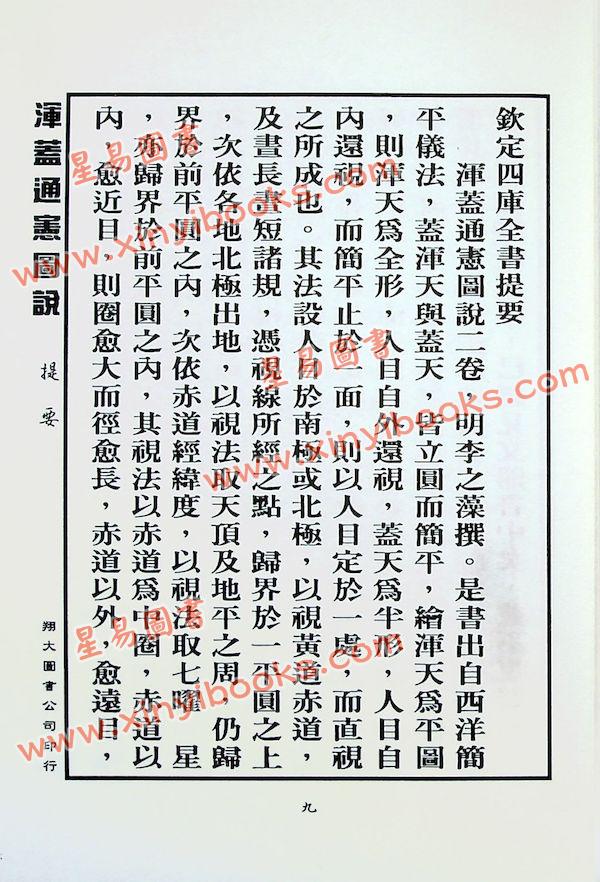 欽定四庫全書提要
渾蓋通憲圖說二卷，明李之藻撰。是書出自西洋簡
平儀法，蓋渾天與蓋天，皆立圓而簡平，繪渾天爲平圖
，則渾天爲全形，人目自外還視，蓋天爲半形，人目自
內還視，而簡平止於一面，則以人目定於一處，而直視
之所成也。其法設人目於南極或北極，以視黃道赤道，
及晝長晝短諸規，憑視線所經之點，歸界於一平圓之上
，次依各地北極出地，以視法取天頂及地平之周，仍歸
界於前平圓之內，次依赤道經緯度，以視法取七曜 星
，亦歸界於前平圓之內，其視法以赤道爲中圈，赤道以
內，愈近目，則圈愈大而徑愈長，赤道以外，愈遠目，
渾蓋通憲圖說
提要
翔大圖書公司印行
九
星易圖書
www.xinyibooks.com
星易圖書
www.xinyibooks.com
星易圖書
www.xinyibooks.com